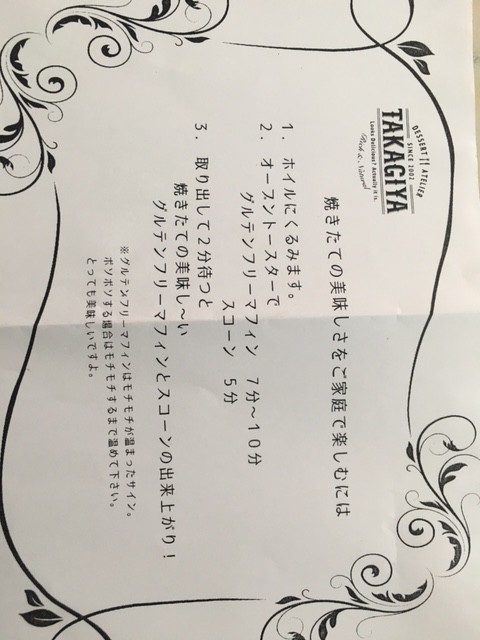 DESSERT ATELIER
SINCE 2002
TAKAGIYA
Looks Delicious? Actually it is.
Fresh & Natural
焼きたての美味しさをご家庭で楽しむには
1. ホイルにくるみます。
2. オーブントースターで
グルテンフリーマフィン 7分~10分
スコーン 5分
3. 取り出して2分待つと
焼きたての美味し~い
グルテンフリーマフィンとスコーンの出来上がり!
※グルテンフリーマフィンはモチモチが温まったサイン。
ボソボソする場合はモチモチするまで温めて下さい。
とっても美味しいですよ。